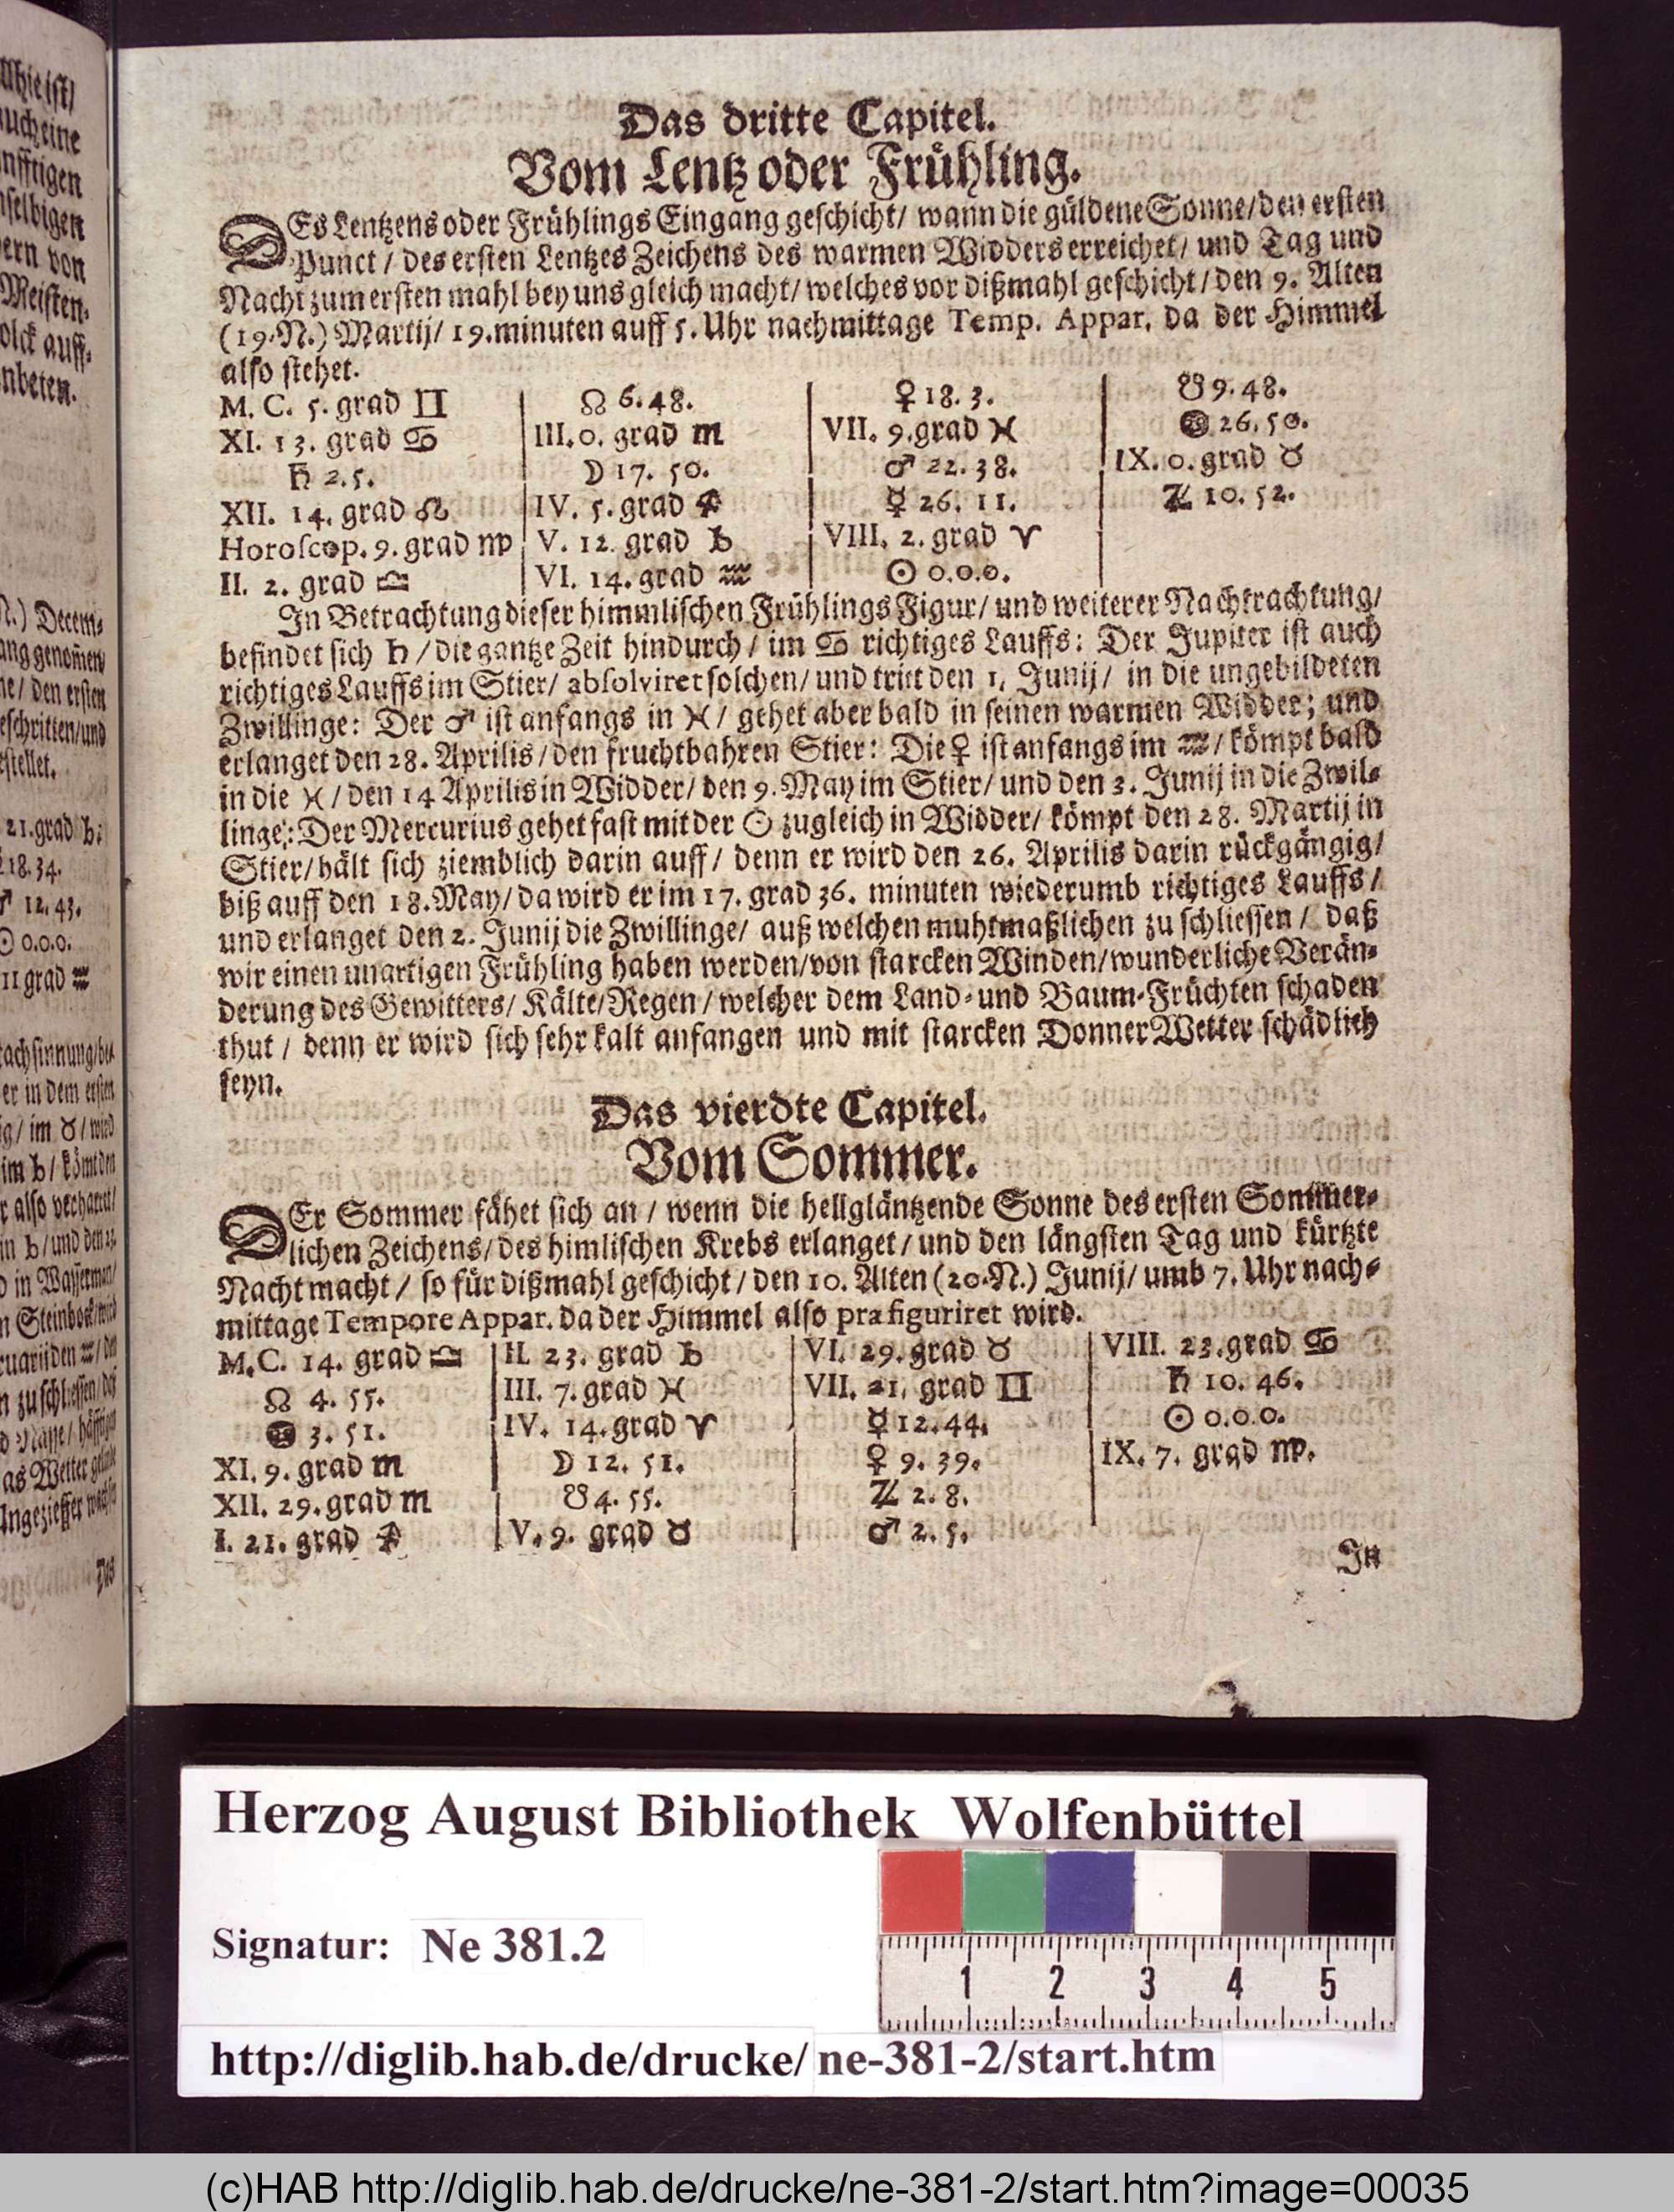 Das dritte Capitel.
Vom Lentz oder Frühling.
DEs Lentzens oder Frühlings Eingang geschicht/ wann die güldene Sonne/ den ersten
Punct / des ersten Lentzes Zeichens des warmen Widders erreichet/ und Tag und
Nacht zum ersten mahl bey uns gleich macht/ welches vor dißmahl geschicht / den 9. Alten
(19. N.) Martij/ 19. minuten auff 5. Uhr nachmittage Temp. Appar, da der Himmel
also stehet.
M. C. 5. grad ♊
XI. 13. grad ♋
♄ 2. 5.
XII. 14. grad ♌
Horoscop. 9. grad ♍
II. 2. grad ♎
☊ 6. 48.
III. 0. grad ♏
☽ 17. 50.
IV. 5. grad ♐
V. 12. grad ♑
VI. 14. grad ♒
♀ 18. 3.
VII. 9. grad ♓
♂ 22. 38.
☿ 26. 11.
VIII. 2. grad ♈
☉ 0. 0. 0.
☋ 9. 48.
⊗ 26. 50.
IX. 0. grad ♉
♃ 10. 52.
In Betrachtung dieser himmlischen Frühlings Figur/ und weiterer Nachtrachtung/
befindet sich ♄ / die gantze Zeit hindurch / im ♋ richtiges Lauffs: Der Jupiter ist auch
richtiges Lauffs im Stier/ absolviret solchen/ und tritt den 1, Junij / in die ungebildeten
Zwillinge: Der ♂ ist anfangs in ♓ / gehet aber bald in seinen warmen Widder; und
erlanget den 28. Aprilis / den fruchtbahren Stier: Die ♀ ist anfangs im ♒ / kömpt bald
in die ♓ / den 14 Aprilis in Widder/ den 9. May im Stier/ und den 3. Junij in die Zwil-
linge: Der Mercurius gehet fast mit der ☉ zugleich in Widder/ kömpt den 28. Martij in
Stier/ hält sich ziemblich darin auff / denn er wird den 26. Aprilis darin rückgängig/
biß auff den 18. May/ da wird er im 17. grad 36. minuten wiederumb richtiges Lauffs /
und erlanget den 2. Junij die Zwillinge/ auß welchen muhtmaßlichen zu schliessen / daß
wir einen unartigen Frühling haben werden/ von starcken Winden/ wunderliche Verän-
derung des Gewitters/ Kälte/ Regen / welcher dem Land- und Baum-Früchten schaden
thut / denn er wird sich sehr kalt anfangen und mit starcken Donner Wetter schädlich
seyn.
Das vierdte Capitel.
Vom Sommer.
DEr Sommer fähet sich an / wenn die hellgläntzende Sonne des ersten Sommer-
lichen Zeichens/ des himlischen Krebs erlanget / und den längsten Tag und kürtzte
Nacht macht / so für dißmahl geschicht / den 10. Alten (20. N.) Junij/ umb 7. Uhr nach-
mittage Tempore Appar. da der Himmel also præfiguriret wird.
M. C. 14. grad ♎
☊ 4. 55.
⊗ 3. 51.
XI. 9. grad ♏
XII. 29. grad ♏
I. 21. grad ♐
II. 23. grad ♑
III. 7. grad ♓
IV. 14. grad ♈
☽ 12. 51.
☋ 4. 55.
V. 9. grad ♉
VI. 29. grad ♉
VII. 21. grad ♊
☿ 12. 44.
♀ 9. 39.
♃ 2. 8.
♂ 2. 5.
VIII. 23. grad ♋
♄ 10. 46.
☉ 0. 0. 0.
IX. 7. grad ♍.
In
Herzog August Bibliothek Wolfenbüttel
Signatur: Ne 381.2
1 2 3 4 5
http://diglib.hab.de/drucke/ ne-381-2/start.htm
(c)HAB http://diglib.hab.de/drucke/ne-381-2/start.htm?image=00035